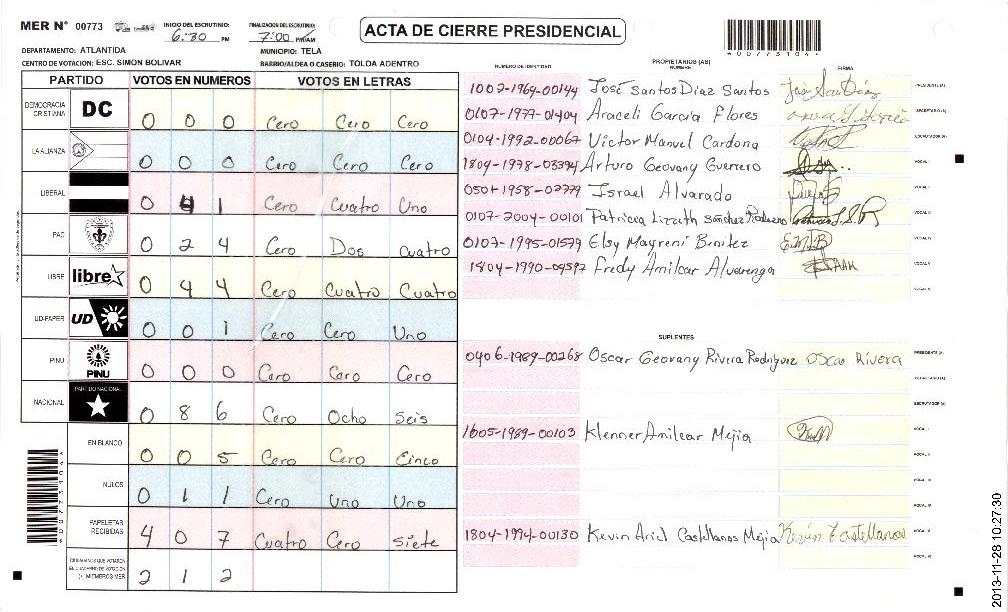 MER Nº 00773
INICIO DEL ESCRUTINIO: 6:30 PM
FINALIZACION DEL ESCRUTINIO: 7:00 PM/AM
ACTA DE CIERRE PRESIDENCIAL
4 0 0 7 7 3 1 0 4
DEPARTAMENTO: ATLANTIDA
MUNICIPIO: TELA
CENTRO DE VOTACION: ESC. SIMON BOLIVAR
BARRIO/ALDEA O CASERIO: TOLOA ADENTRO
PARTIDO VOTOS EN NUMEROS VOTOS EN LETRAS
DEMOCRACIA CRISTIANA DC 0 0 0 Cero Cero Cero
LA ALIANZA 0 0 0 Cero Cero Cero
LIBERAL 0 4 1 Cero Cuatro Uno
PAC 0 2 4 Cero Dos Cuatro
LIBRE libre 0 4 4 Cero Cuatro Cuatro
UD-FAPER UD 0 0 1 Cero Cero Uno
PINU PINU 0 0 0 Cero Cero Cero
NACIONAL PARTIDO NACIONAL 0 8 6 Cero Ocho Seis
EN BLANCO 0 0 5 Cero Cero Cinco
NULOS 0 1 1 Cero Uno Uno
PAPELETAS RECIBIDAS 4 0 7 Cuatro Cero Siete
CIUDADANOS QUE VOTARON EN CUADERNO DE VOTACION (+) MIEMBROS MER 2 1 2
PROPIETARIOS (AS)
NUMERO DE IDENTIDAD NOMBRE FIRMA
1002-1964-00144 José Santos Diaz Santos PRESIDENTE (A)
0107-1977-01404 Araceli Garcia Flores SECRETARIO (A)
0104-1992-00067 Victor Manuel Cardona ESCRUTADOR (A)
1804-1978-03394 Arturo Geovany Guerrero VOCAL I
0501-1958-02779 Israel Alvarado VOCAL II
0107-2004-00101 Patricia Lizzeth Sánchez VOCAL III
0107-1995-01579 Elsy Mayreni Benitez VOCAL IV
1804-1990-04597 Fredy Amilcar Alvarenga VOCAL V
SUPLENTES
0406-1989-00268 Oscar Geovany Rivera Rodriguez Oscar Rivera PRESIDENTE (A)
SECRETARIO (A)
ESCRUTADOR (A)
1605-1989-00103 Klenner Amilcar Mejia VOCAL I
1804-1994-00130 Kevin Ariel Castellanos Mejia Kevin Castellanos
2013-11-28 10:27:30